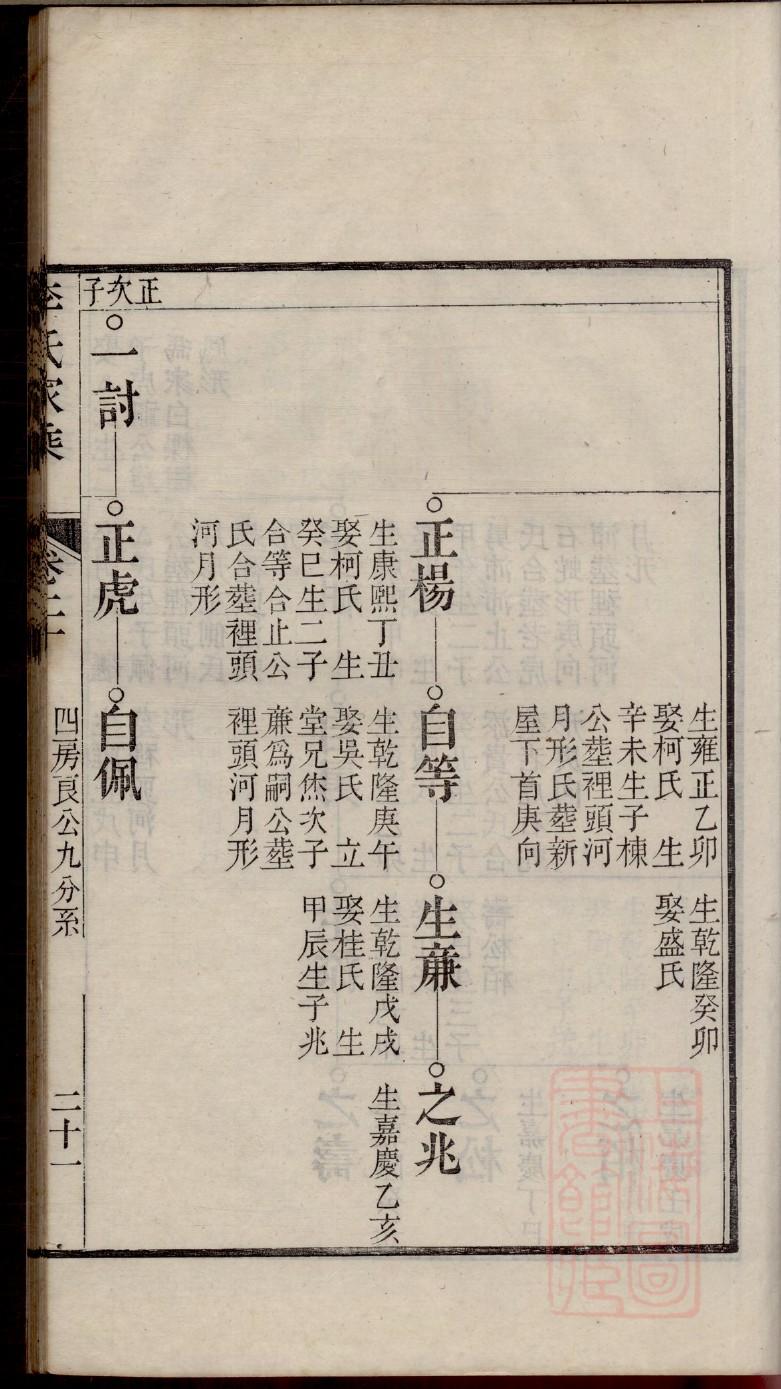 生雍正乙卯
娶柯氏　生
辛未生子棟
公塟裡頭河
月形氏塟新
屋下首庚向
生乾隆癸卯
娶盛氏
正楊
自等
生亷
之兆
生康熙丁丑
娶柯氏　生
癸巳生二子
合等合止公
氏合塟裡頭
河月形
生乾隆庚午
娶吳氏　立
堂兄烋次子
亷爲嗣公塟
裡頭河月形
生乾隆戊戌
娶桂氏　生
甲辰生子兆
生嘉慶乙亥
正次子
一討
正虎
自佩
李氏家乘
卷二十
四房良公九分系
二十一